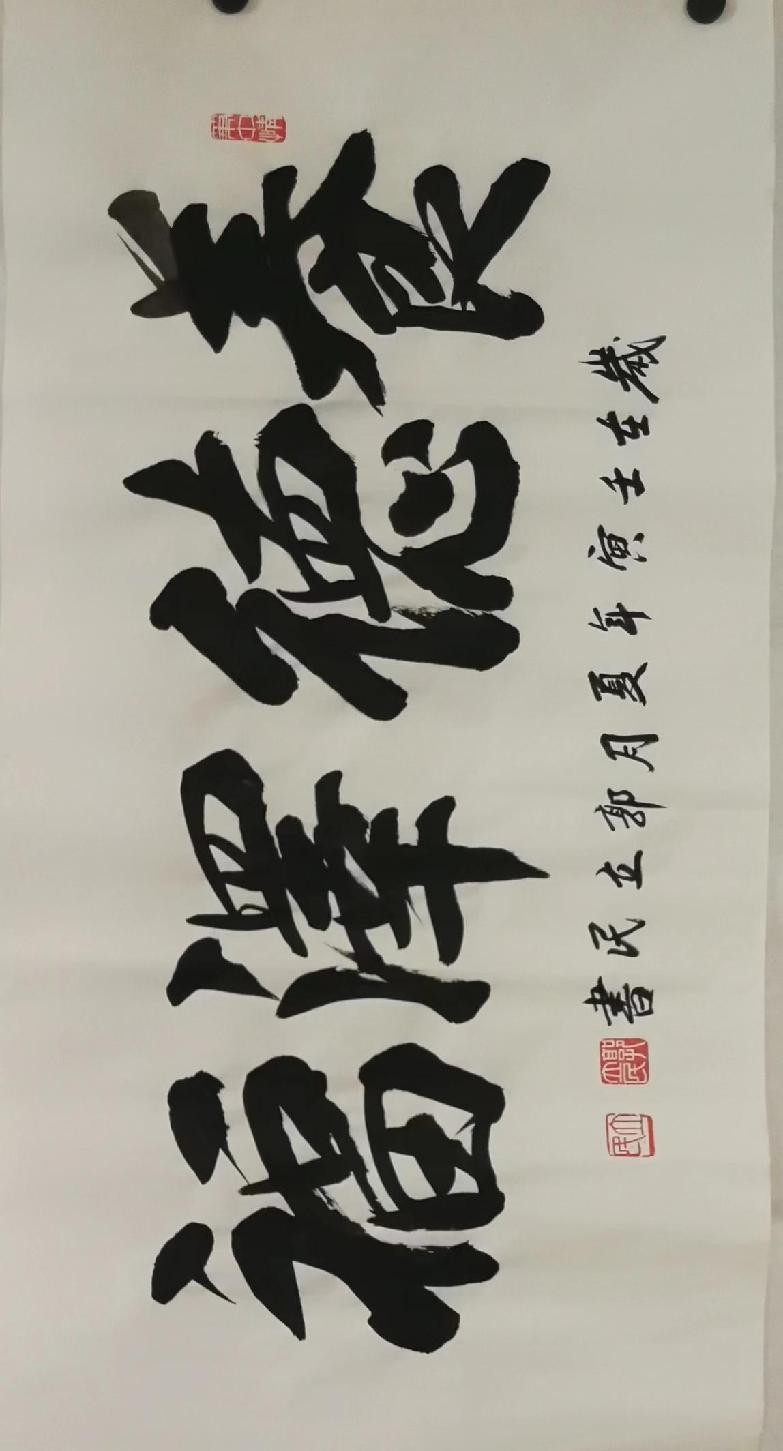 養德澤福
歲在壬寅年夏月郭立民書